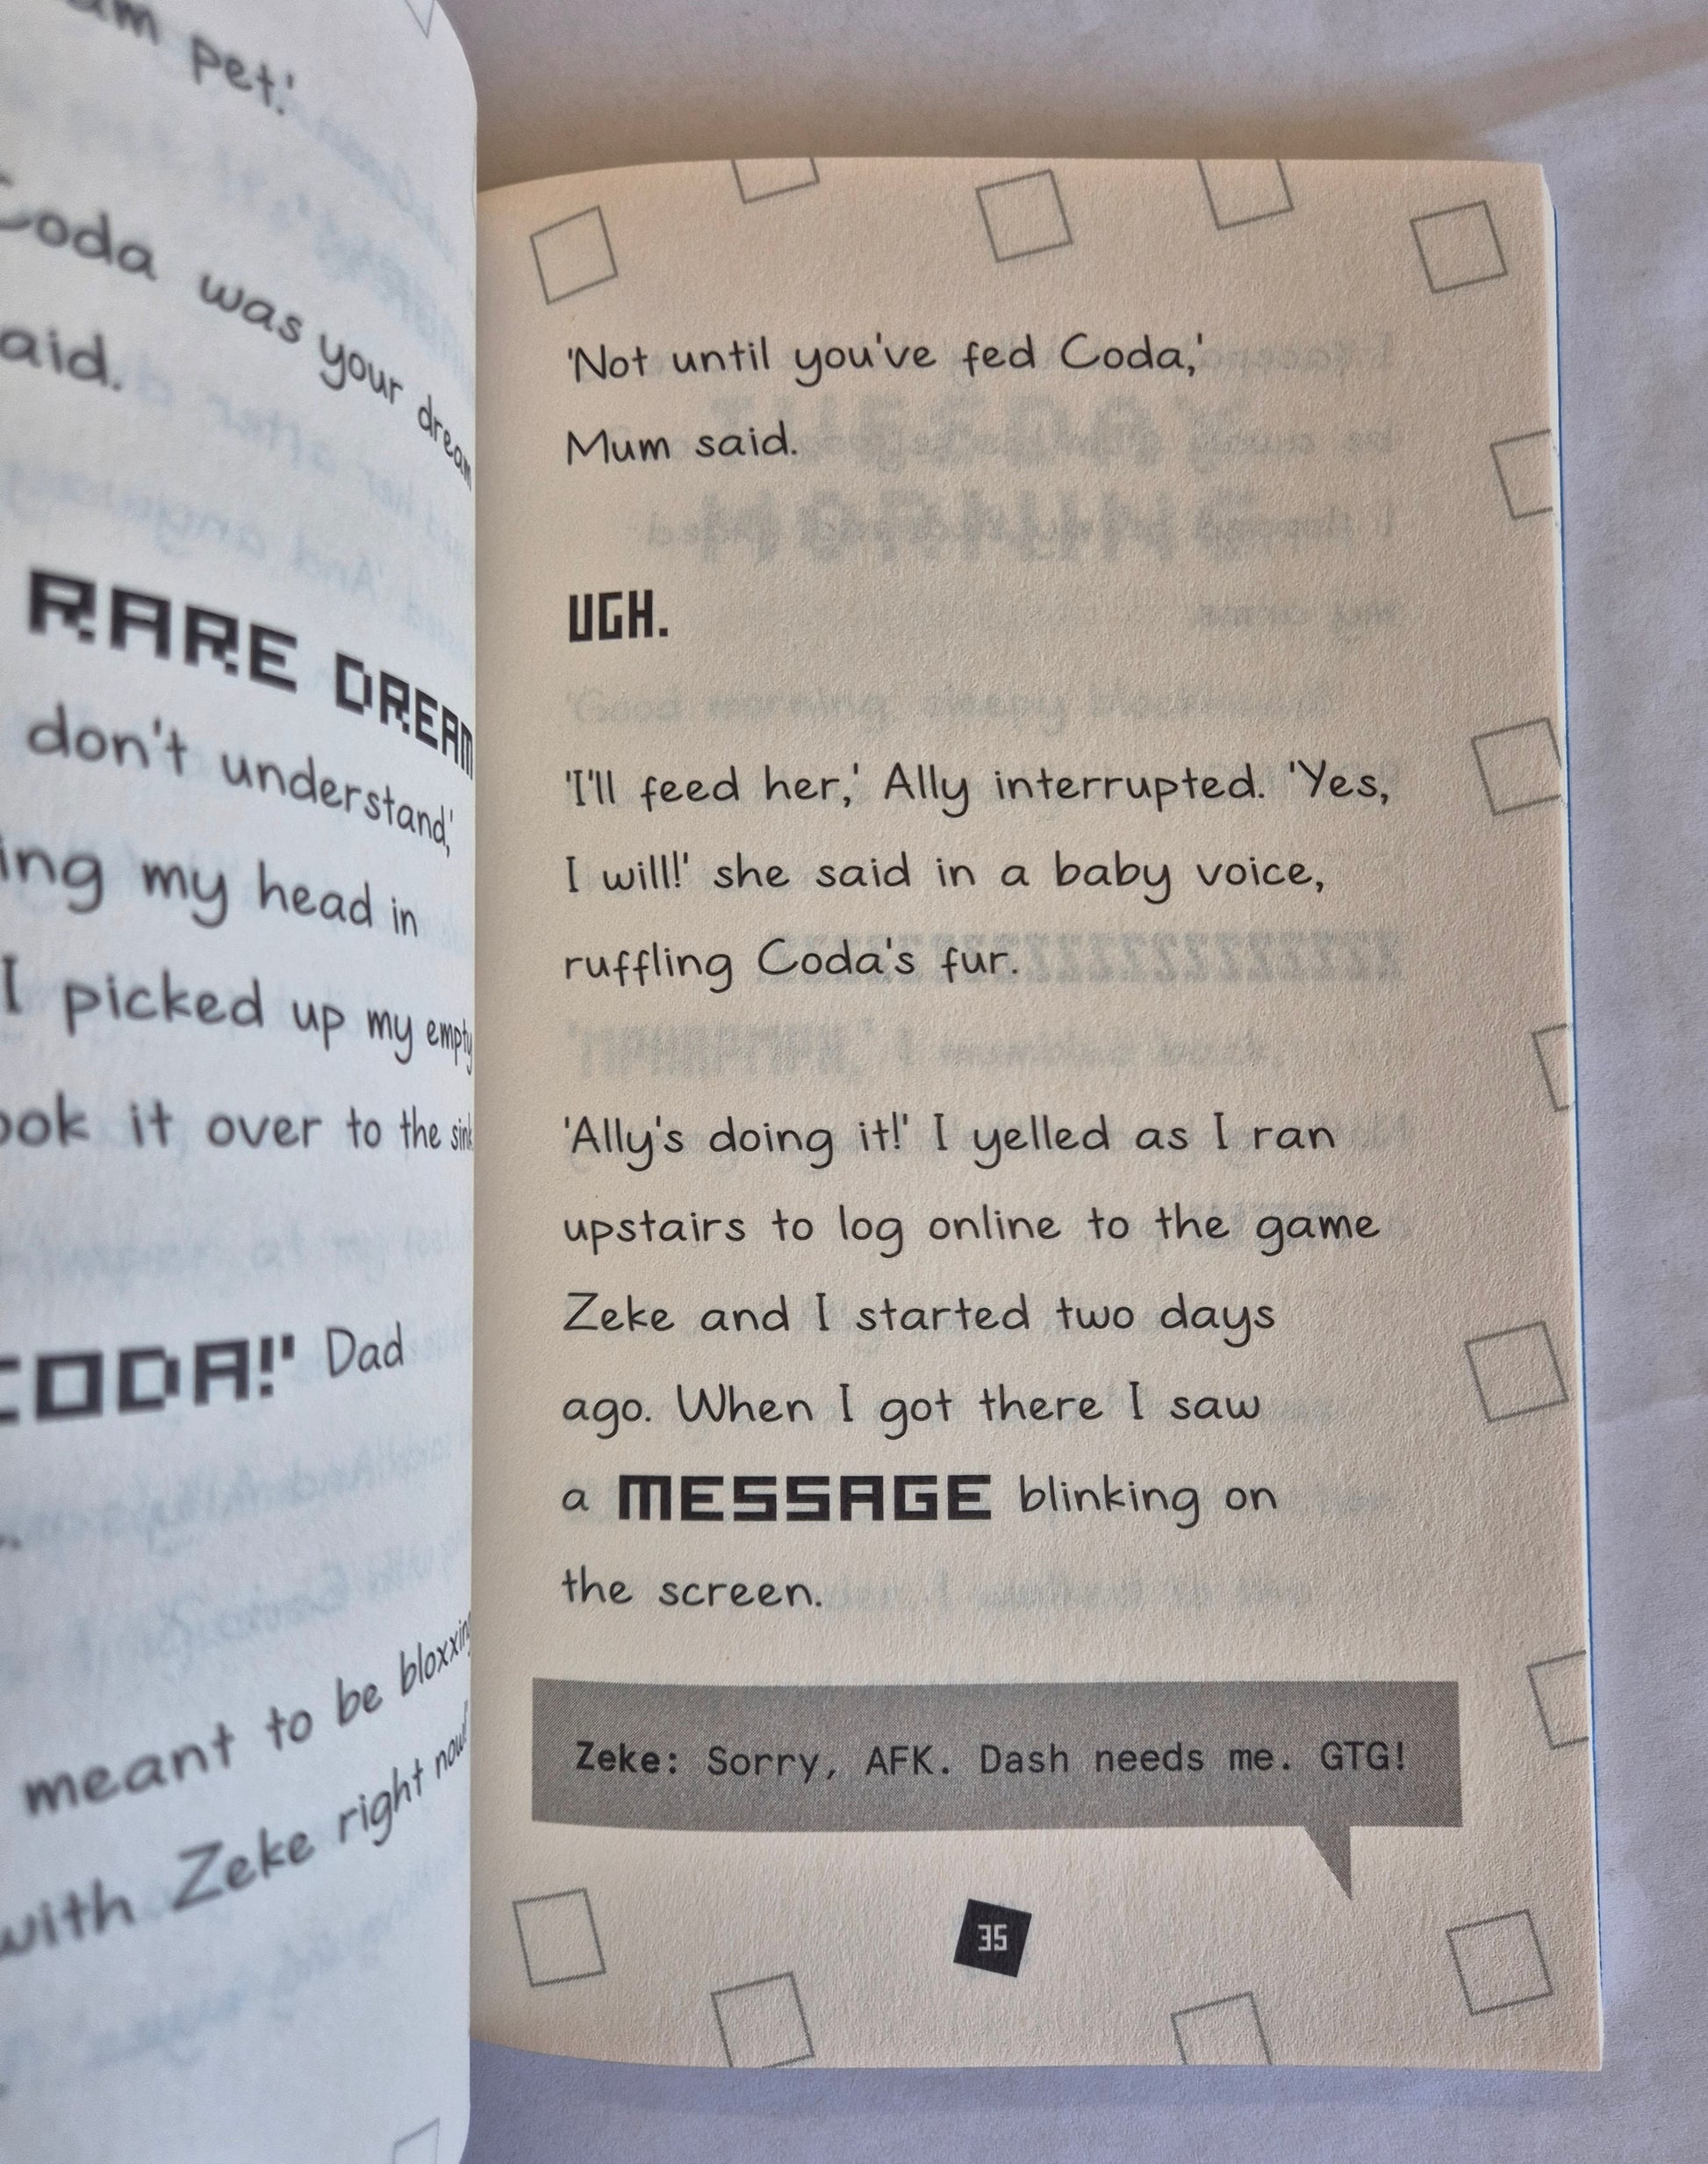 pet.'
Coda was your dream
said.
RARE DREAM
don't understand,'
my head in
I picked up my empty
it over to the sink
CODA!' Dad
meant to be bloxxing
with Zeke right now
'Not until you've fed Coda,'
Mum said.
UGH.
'I'll feed her,' Ally interrupted. 'Yes,
I will!' she said in a baby voice,
ruffling Coda's fur.
'Ally's doing it!' I yelled as I ran
upstairs to log online to the game
Zeke and I started two days
ago. When I got there I saw
a MESSAGE blinking on
the screen.
Zeke: Sorry, AFK. Dash needs me. GTG!
35